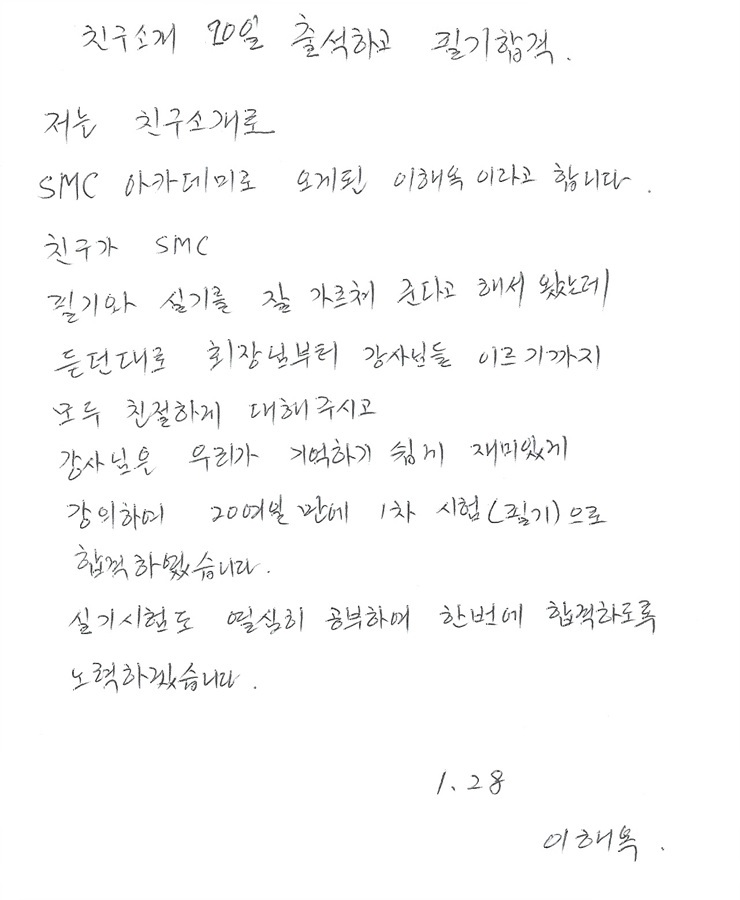 친구소개 20일 출석하고 필기합격.
저는 친구소개로
SMC 아카데미로 오게된 이해옥 이라고 합니다.
친구가 SMC
필기와 실기를 잘 가르쳐 준다고 해서 왔는데
듣던대로 회장님부터 강사님들 이르기까지
모두 친절하게 대해주시고
강사님은 우리가 기억하기 쉽게 재미있게
강의하여 20여일 만에 1차 시험(필기)으로
합격하였습니다.
실기시험도 열심히 공부하여 한번에 합격하도록
노력하겠습니다.
1. 28
이해옥.